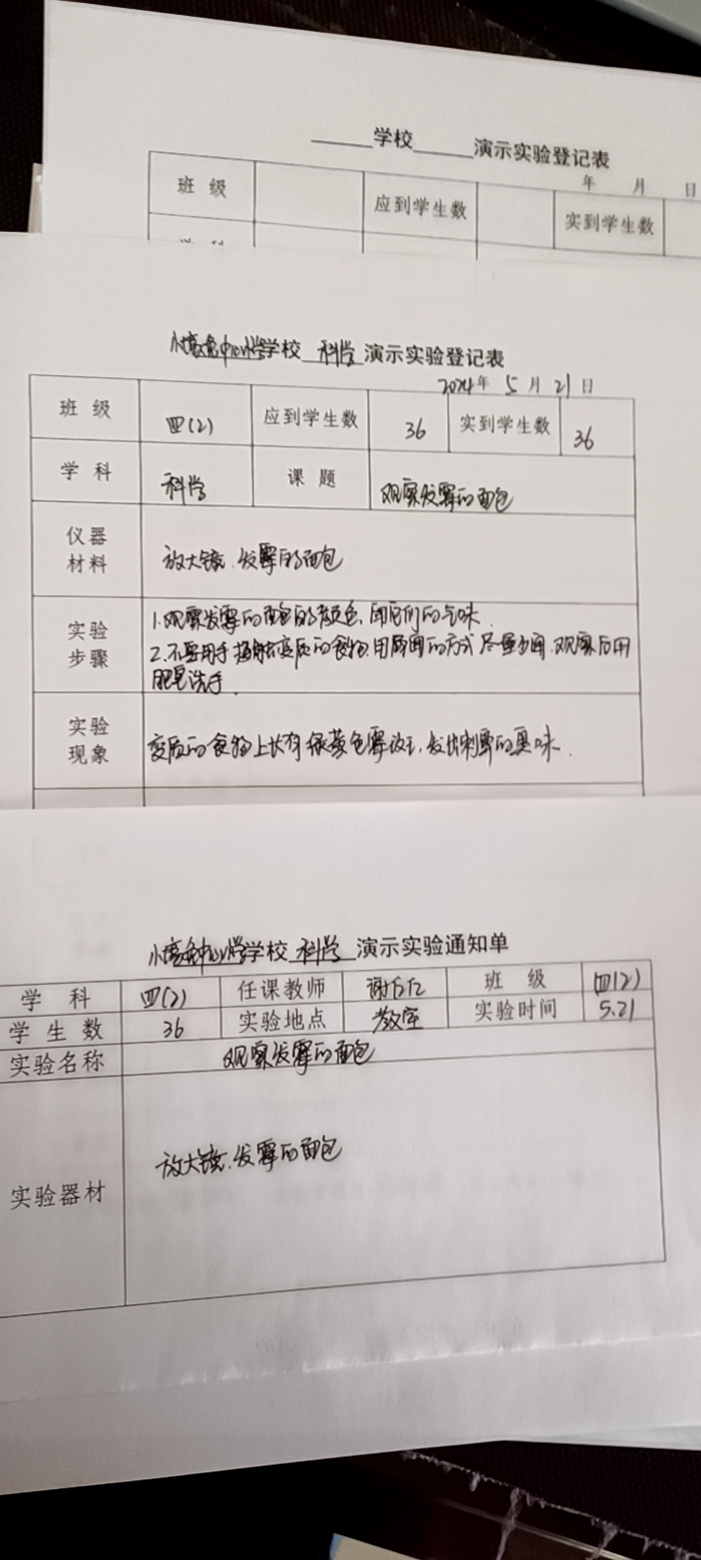 学校 演示实验登记表
年 月 日
班 级 应到学生数 实到学生数
学校 科学 演示实验登记表
2024年 5 月 21 日
班 级 四(2) 应到学生数 36 实到学生数 36
学 科 科学 课 题 观察发霉的面包
仪器 材料 放大镜、发霉的面包
实验 步骤 1.观察发霉的面包的颜色,闻它们的气味.
2.不要用手接触变质的食物.用扇闻的方式尽量少闻.观察后用
肥皂洗手.
实验 现象 变质的食物上长有绿蓝色霉菌,发出刺鼻的臭味.
学校 科学 演示实验通知单
学 科 四(2) 任课教师 班 级 四(2)
学 生 数 36 实验地点 教室 实验时间 5.21
实验名称 观察发霉的面包
实验器材 放大镜、发霉的面包